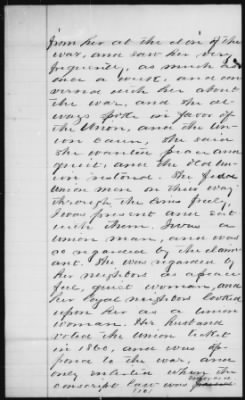 from her at the close of the
war, and saw her very
frequently, as much as
once a week, and con
versed with her about
the war, and she al
ways spoke in favor of
the Union, and the Un
ion cause, she said
she wanted peace and
quiet, and the Old Un
ion restored. She fed
Union men on their way
through the lines freely,
I was present and eat
with them. I was a
Union man, and was
so regarded by the claim
ant. She was regarded by
her neighbors as a peace
ful, quiet woman, and
her loyal neighbors looked
upon her as a Union
woman. Her husband
voted the Union ticket
in 1860, and was op
posed to the war, and
only enlisted when the
conscript law was